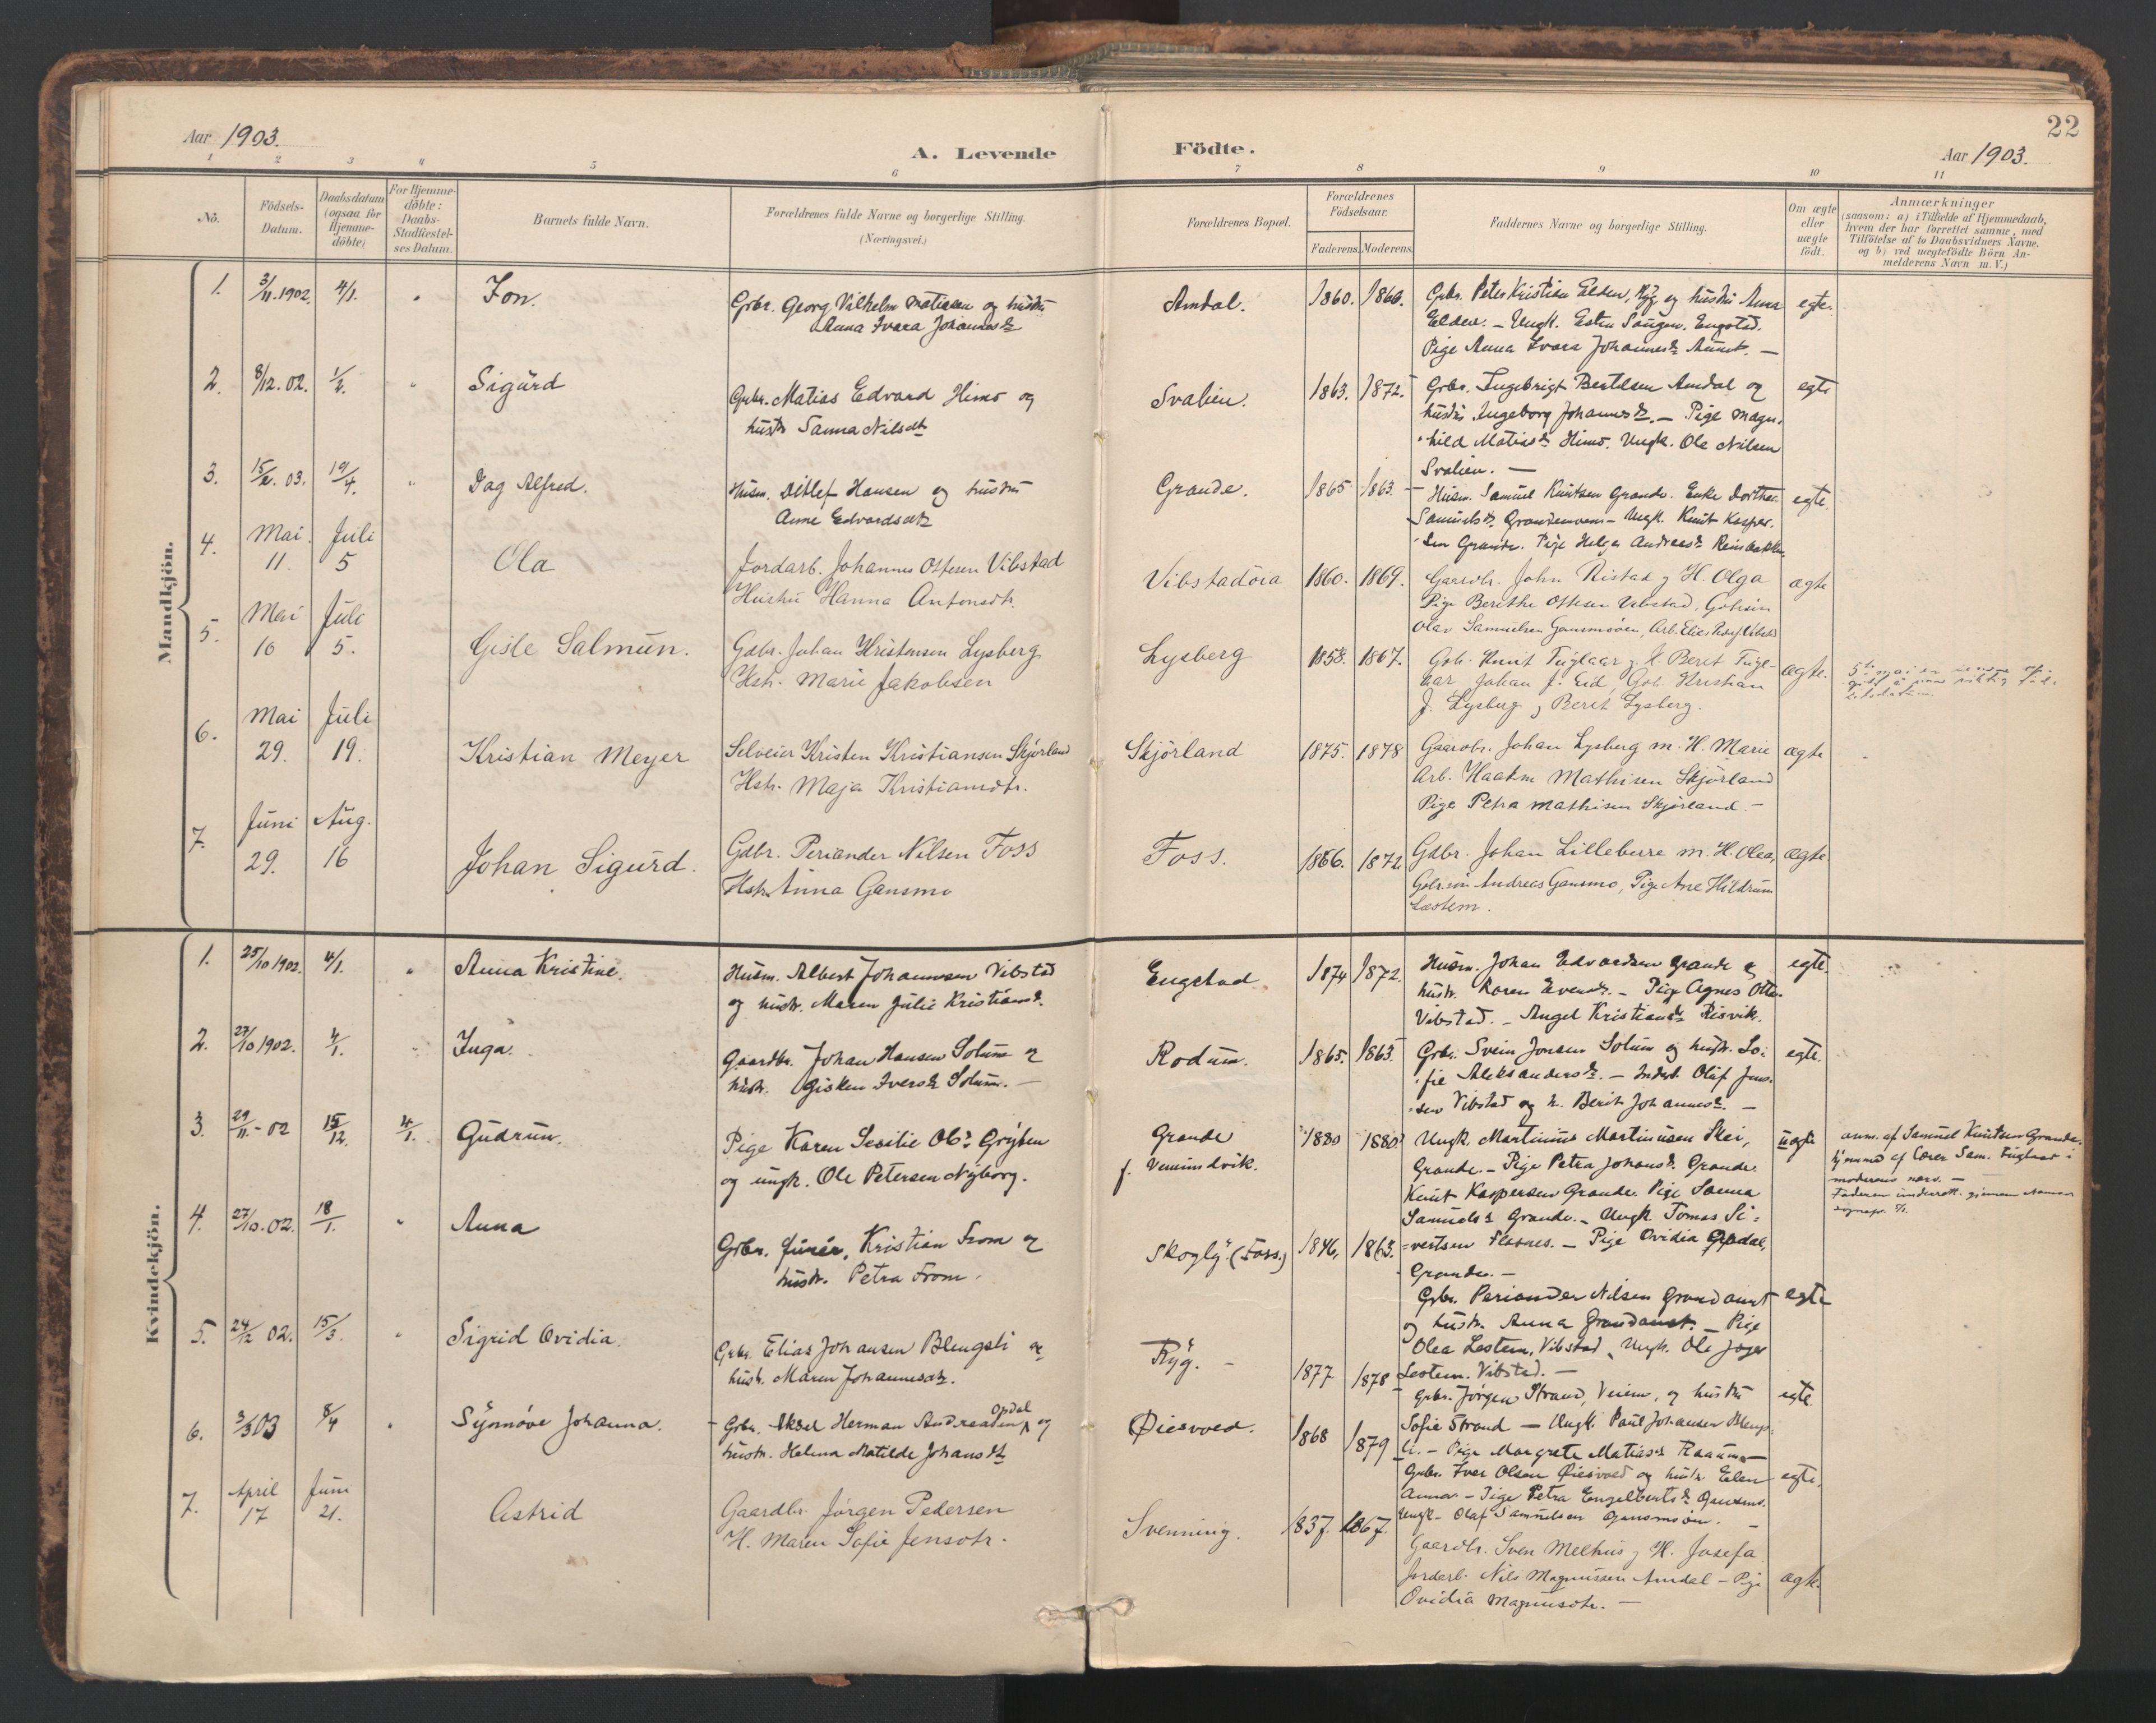 22
Aar 1903.
A. Levende Födte.
Aar 1903.
1 2 3 4 5 6 7 8 9 10 11
No.
Födsels-Datum.
Daabsdatum (ogsaa for Hjemme-döbte)
For Hjemme-döbte: Daabs-Stadfæstel-ses Datum.
Barnets fulde Navn.
Forældrenes fulde Navne og borgerlige Stilling. (Næringsvei.)
Forældrenes Bopæl.
Forældrenes Födselsaar.
Faderens. Moderens.
Faddernes Navne og borgerlige Stilling.
Om ægte eller uægte födt.
Anmærkninger
(saasom: a) i Tilfælde af Hjemmedaab,
hvem der har forrettet samme, med
Tilföielse af to Daabsvidners Navne.
og b) ved uægtefödte Börn An-
melderens Navn m. V.)
Mandkjön.
1. 3/11.1902. 4/1. " Jon.
Grbr. Georg Vilhelm Matiasen og hustru
Anna Ivara Johannesdr
Amdal. 1860. 1860.
Grbr. Peter Kristian Elden, Ryg og hustru Anna
Elden. – Ungk. Esten Saugen, Engstad.
Pige Anna Ivara Johannesdr Aunet. –
egte.
2. 8/12.02. 1/2. " Sigurd
Grbr. Matias Edvard Himo og
hustr. Sanna Nilsdtr
Svalien. 1863. 1872.
Grbr. Ingebrigt Bertelsen Amdal og
hustru Ingeborg Johannesdr. – Pige Magn-
hild Matiasdr Himo. Ungk. Ole Nilsen
Svalien. –
egte
3. 15/2.03. 19/4. " Dag Alfred.
Husm. Ditlef Hansen og hustru
Anne Edvardsdtr
Grande. 1865 1863.
Husm. Samuel Knutsen Grande. Enke Dorthea
Samuelsdr. Grandemoen – Ungk. Knut Kasper-
sen Grande. Pige Helga Andreasdr Reinbakken.
egte.
4. Mai 11. Juli 5 Ola
Jordarb. Johannes Ottesen Vibstad
Hustru Hanna Antonsdtr.
Vibstadöia 1860. 1869.
Gaardbr. John Ristad og H. Olga
Pige Berethe Ottesen Vibstad, Gbrsön
Olav Samuelsen Gansmoen, Arb. Elias
ægte
5. Mai 16 Juli 5. Gisle Salmun.
Gdbr. Johan Kristensen Lysberg
Hstr. Marie Jakobsen
Lysberg 1858. 1867.
Gbr. Knut Fuglaar og H. Berit Fugl-
aar Johan J. Eid, Gbr. Kristian
J. Lysberg og Berit Lysberg.
ægte.
6. Mai 29. Juli 19. Kristian Meyer
Selveier Kristen Kristiansen Skjörland
Hstr. Maja Kristiansdtr.
Skjörland 1875. 1878
Gaardbr. Johan Lysberg m. H. Marie
Arb. Haakon Mathisen Skjörland
Pige Petra Mathisen Skjörland. –
ægte
7. Juni 29. Aug. 16 Johan Sigurd.
Gdbr. Periander Nilsen Foss
Hstr. Anna Gansmo
Foss. 1866. 1872
Gdbr. Johan Lilleberre m. H. Olea,
Gbrsön Andreas Gansmo, Pige Ane Hildrum
Læstem.
ægte
Kvindekjön.
1. 25/10 1902. 4/1. " Anna Kristine.
Husm. Albert Johannesen Vibstad
og hustr. Maren Julie Kristiansdr.
Engstad 1874 1872.
Husm. Johan Edvardsen Grande og
hustr. Karen Evensdr. – Pige Agnes Otte-
Vibstad. – Angel Kristiansdr Risvik.
egte.
2. 27/10 1902. 4/1. " Inga.
Gaardbr. Johan Hansen Solum og
hustr. Gisken Iversdr Solum. –
Rodum. 1865. 1863.
Grbr. Svein Jonsen Solum og hustr. So-
fie Aleksandersdr. – Inderst Olaf Jens-
sen Vibstad og h. Berit Johannesdr. –
egte.
3. 29/11.-02 15/12. 4/1. Gudrun.
Pige Karen Sesilie Olsdr Gryten
og ungk. Ole Petersen Nyborg.
Grande
f. Vemundvik.
1880 1880
Ungk. Martinus Martinusen Skei,
Grande. – Pige Petra Johansdr. Grande.
Knut Kaspersen Grande. Pige Sanna
Samuelsdr Grande. – Ungk. Tomas Si-
vertsen – Pige Ovidia
Grande. –
uegte
anm. af Samuel Knutsen Grande.
hjemmed. af Lærer Sam. Fuglaar i
moderens nærv. –
Faderen underrett. gjennem Namsos
sognepr.
4. 27/10.02. 18/1. " Anna
Grbr. Kristian From og
hustr. Petra From.
Skogly. (Foss.) 1846, 1863.
Grbr. Periander Nilsen Grandaunet
og hustr. Anna Grandaunet. – Pige
Olea Lestem, Vibstad, Ungk. Ole Jager
Lestem. Vibstad. –
egte
5. 24/12 02. 15/3. " Sigrid Ovidia.
Grbr. Elias Johansen Blengsli og
hustr. Maren Johannesdtr.
Ryg. – 1877 1878
Grbr. Jørgen Strand, Veiem, og hustru
Sofie Strand – Ungk. Paul Johansen Blengs-
li. – Pige Margrete Matiasdr
egte
6. 3/3 03 8/4 " Synnöve Johanna.
Grbr. Aksel Herman Andreassen Opdal og
hustr. Helena Matilde Johansdtr
Øiesvoed. 1868 1879
Grbr. Iver Olsen Øiesvoed og hustr. Elen
Anna – Pige Petra Engelbertsdr Gansmo.
Ungk. Olaf Samuelsen Gansmoen. –
egte,
7. April 17 Juni 21. Astrid
Gaardbr. Jørgen Pedersen
H. Maren Sofie Jensdtr.
Svenning. 1837. 1867.
Gaardbr. Sven Melhus og H. Josefa
Jordarb. Nils Magnussen Amdal – Pige
Ovidia Magnusdtr. –
ægte.